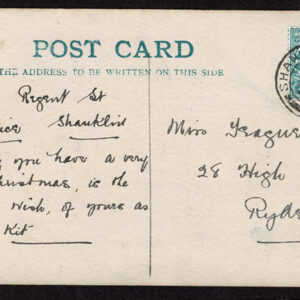 POST CARD
THE ADDRESS TO BE WRITTEN ON THIS SIDE
SHAN
Regent St
Shanklin
you have a very
Christmas, is the
wish, of yours as
Kit
Miss Teague
28 High
Ryde